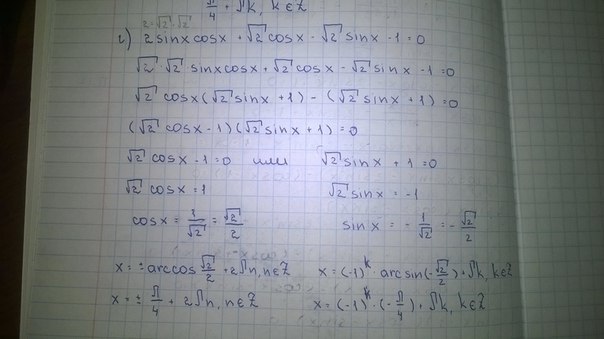 π/4 + πk, k∈Z
2=√2·√2
г) 2sinxcosx + √2 cosx - √2 sinx - 1 = 0
√2·√2 sinxcosx + √2 cosx - √2 sinx - 1 = 0
√2 cosx(√2 sinx + 1) - (√2 sinx + 1) = 0
(√2 cosx - 1)(√2 sinx + 1) = 0
√2 cosx - 1 = 0 или √2 sinx + 1 = 0
√2 cosx = 1 √2 sinx = -1
cosx = 1/√2 = √2/2 sinx = - 1/√2 = - √2/2
x = ± arccos √2/2 + 2πn, n∈Z x = (-1)^k arcsin(-√2/2) + πk, k∈Z
x = ± π/4 + 2πn, n∈Z x = (-1)^k · (-π/4) + πk, k∈Z